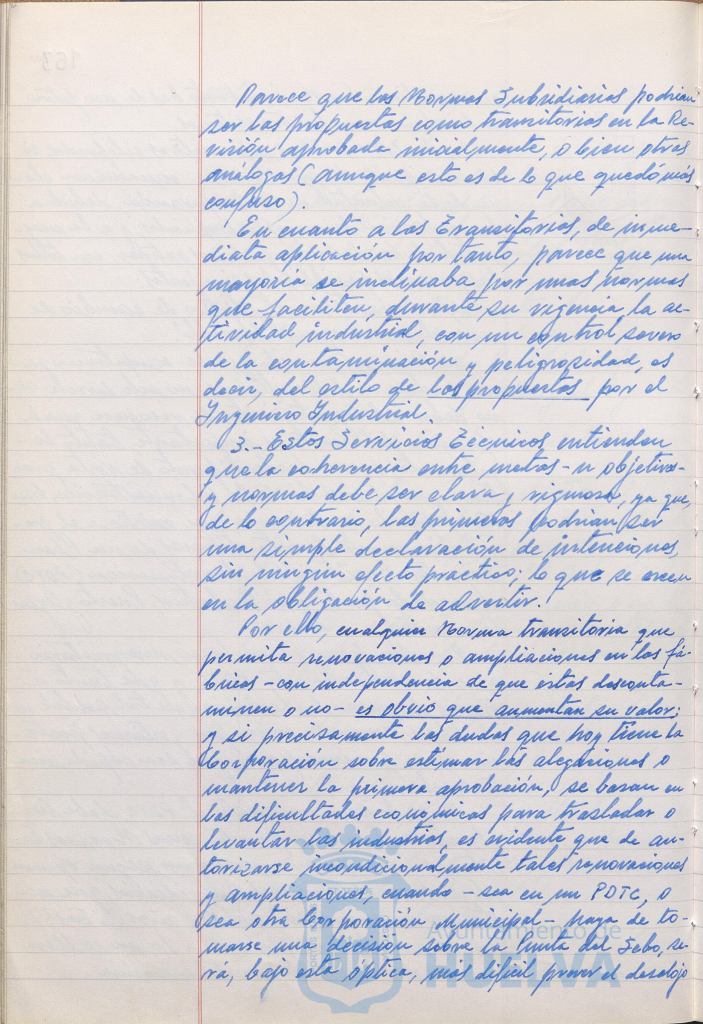 Parece que las Normas Subsidiarias podrian
ser las propuestas como transitorias en la Re-
visión aprobada inicialmente, o bien otras
análogas (aunque esto es de lo que quedó más
confuso).
En cuanto a las Transitorias, de inme-
diata aplicación por tanto, parece que una
mayoría se inclinaba por unas normas
que faciliten, durante su vigencia la ac-
tividad industrial, con un control severo
de la contaminación y peligrosidad, es
decir, del estilo de las propuestas por el
Ingeniero Industrial.
3.- Estos Servicios Técnicos entienden
que la coherencia entre metas - u objetivos-
y normas debe ser clara y rigurosa, ya que,
de lo contrario, las primeras podrian ser
una simple declaración de intenciones,
sin ningún efecto práctico; lo que se creen
en la obligación de advertir.
Por ello, cualquier Norma transitoria que
permita renovaciones o ampliaciones en las fá-
bricas - con independencia de que éstas desconta-
minen o no - es obvio que aumentan su valor;
y si precisamente las dudas que hoy tiene la
Corporación sobre estimar las alegaciones o
mantener la primera aprobación, se basan en
las dificultades económicas para trasladar o
levantar las industrias, es evidente que de au-
torizarse incondicionalmente tales renovaciones
y ampliaciones, cuando - sea en un PDTC, o
sea otra Corporación Municipal - haya de to-
marse una decisión sobre la Punta del Sebo, se-
rá, bajo esta óptica, más difícil prever el desalojo
Ayuntamiento de
HUELVA